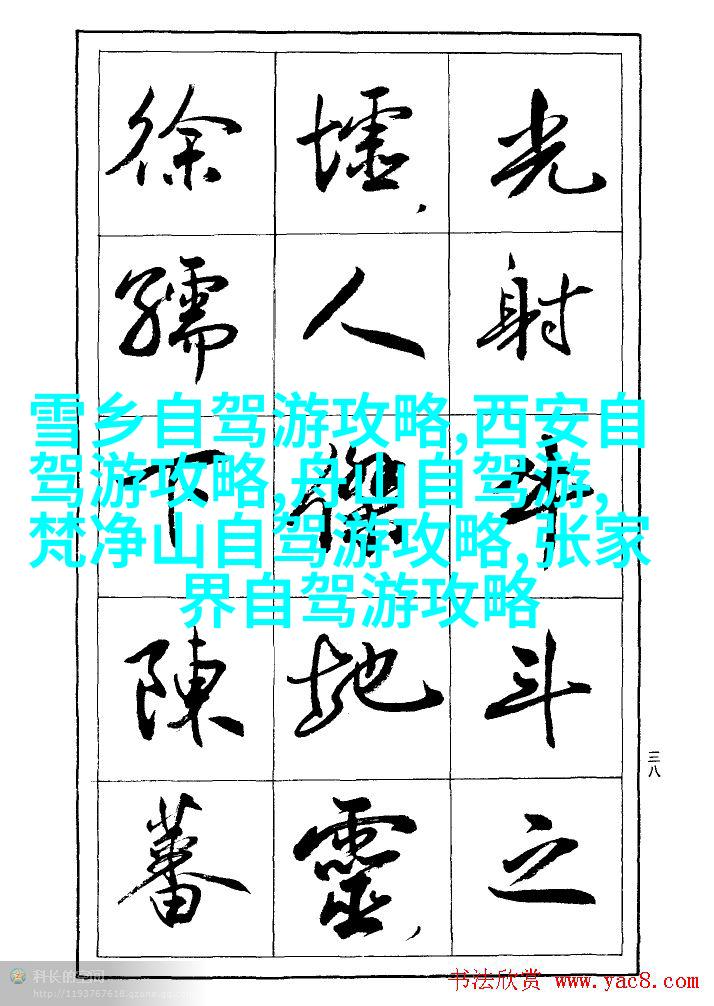 光射牛斗之
墟,人傑地靈,
徐孺下陳蕃
雪乡自驾游攻略,西安自
驾游攻略,舟山自驾游,
梵净山自驾游攻略,张家
界自驾游攻略
三八
科长的空间
书法欣赏 www.yac8.com